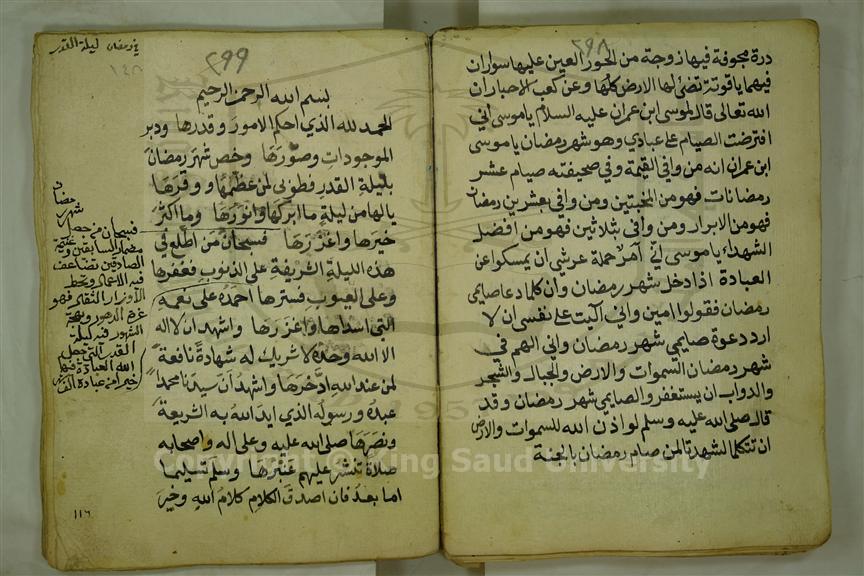 ٢٩٨
درة مجوفة فيها زوجة من الحور العين عليها سواران
فيهما ياقوتة تضئ لها الارض كلها وعن كعب الاحبار ان
الله تعالى قال لموسى ابن عمران عليه السلام ياموسى اني
افترضت الصيام على عبادي وهو شهر رمضان ياموسى
ابن عمران انه من وافي القيمة وفي صحيفته صيام عشر
رمضانات فهو من المخبتين ومن وافي بعشرين رمضان
فهو من الابرار ومن وافي بثلاثين فهو من افضل
الشهداء ياموسى اني آمر حملة عرشي ان يمسكوا عن
العبادة اذا دخل شهر رمضان وان كلما دعا صايمي
رمضان فقولوا امين واني آليت على نفسي ان لا
ارد دعوة صايمي شهر رمضان واني الهم في
شهر رمضان السموات والارض والجبال والشجر
والدواب ان يستغفروا لصايمي شهر رمضان وقد
قال صلى الله عليه وسلم لو اذن الله للسموات والارض
ان تتكلما لشهدتا لمن صام رمضان بالجنة
٢٩٩
في رمضان ليلة القدر
١٤٨
بسم الله الرحمن الرحيم
الحمد لله الذي احكم الامور وقدرها ودبر
الموجودات وصورها وخص شهر رمضان
بليلة القدر فطوبى لمن عظمها ووقرها
يالها من ليلة ما ابركها وانورها وما اكثر
خيرها واغزرها فسبحان من اطلع في
هذه الليلة الشريفة على الذنوب فغفرها
وعلى العيوب فسترها احمده على نعمه
التي اسداها واغزرها واشهد ان لا اله
الا الله وحده لا شريك له شهادة نافعة
لمن عند الله ادخرها واشهد ان سيدنا محمدا
عبده ورسوله الذي ايد الله به الشريعة
ونصرها صلى الله عليه وعلى اله واصحابه
صلاة تنشر عليهم عنبرها وسلم تسليما
اما بعد فان اصدق الكلام كلام الله وخير
رمضان
شهر
فسبحان من جعل
مضمار السابقين وغنيمة
الصادقين تضاعف
فيه الاعمال وتحط
الاوزار الثقال فهو
غرة الدهور وبهجة
الشهور فيه ليلة
القدر التي جعل
الله العبادة فيها
خيرا من عبادة الف شهر
١١٦
Copyright © King Saud University
1957